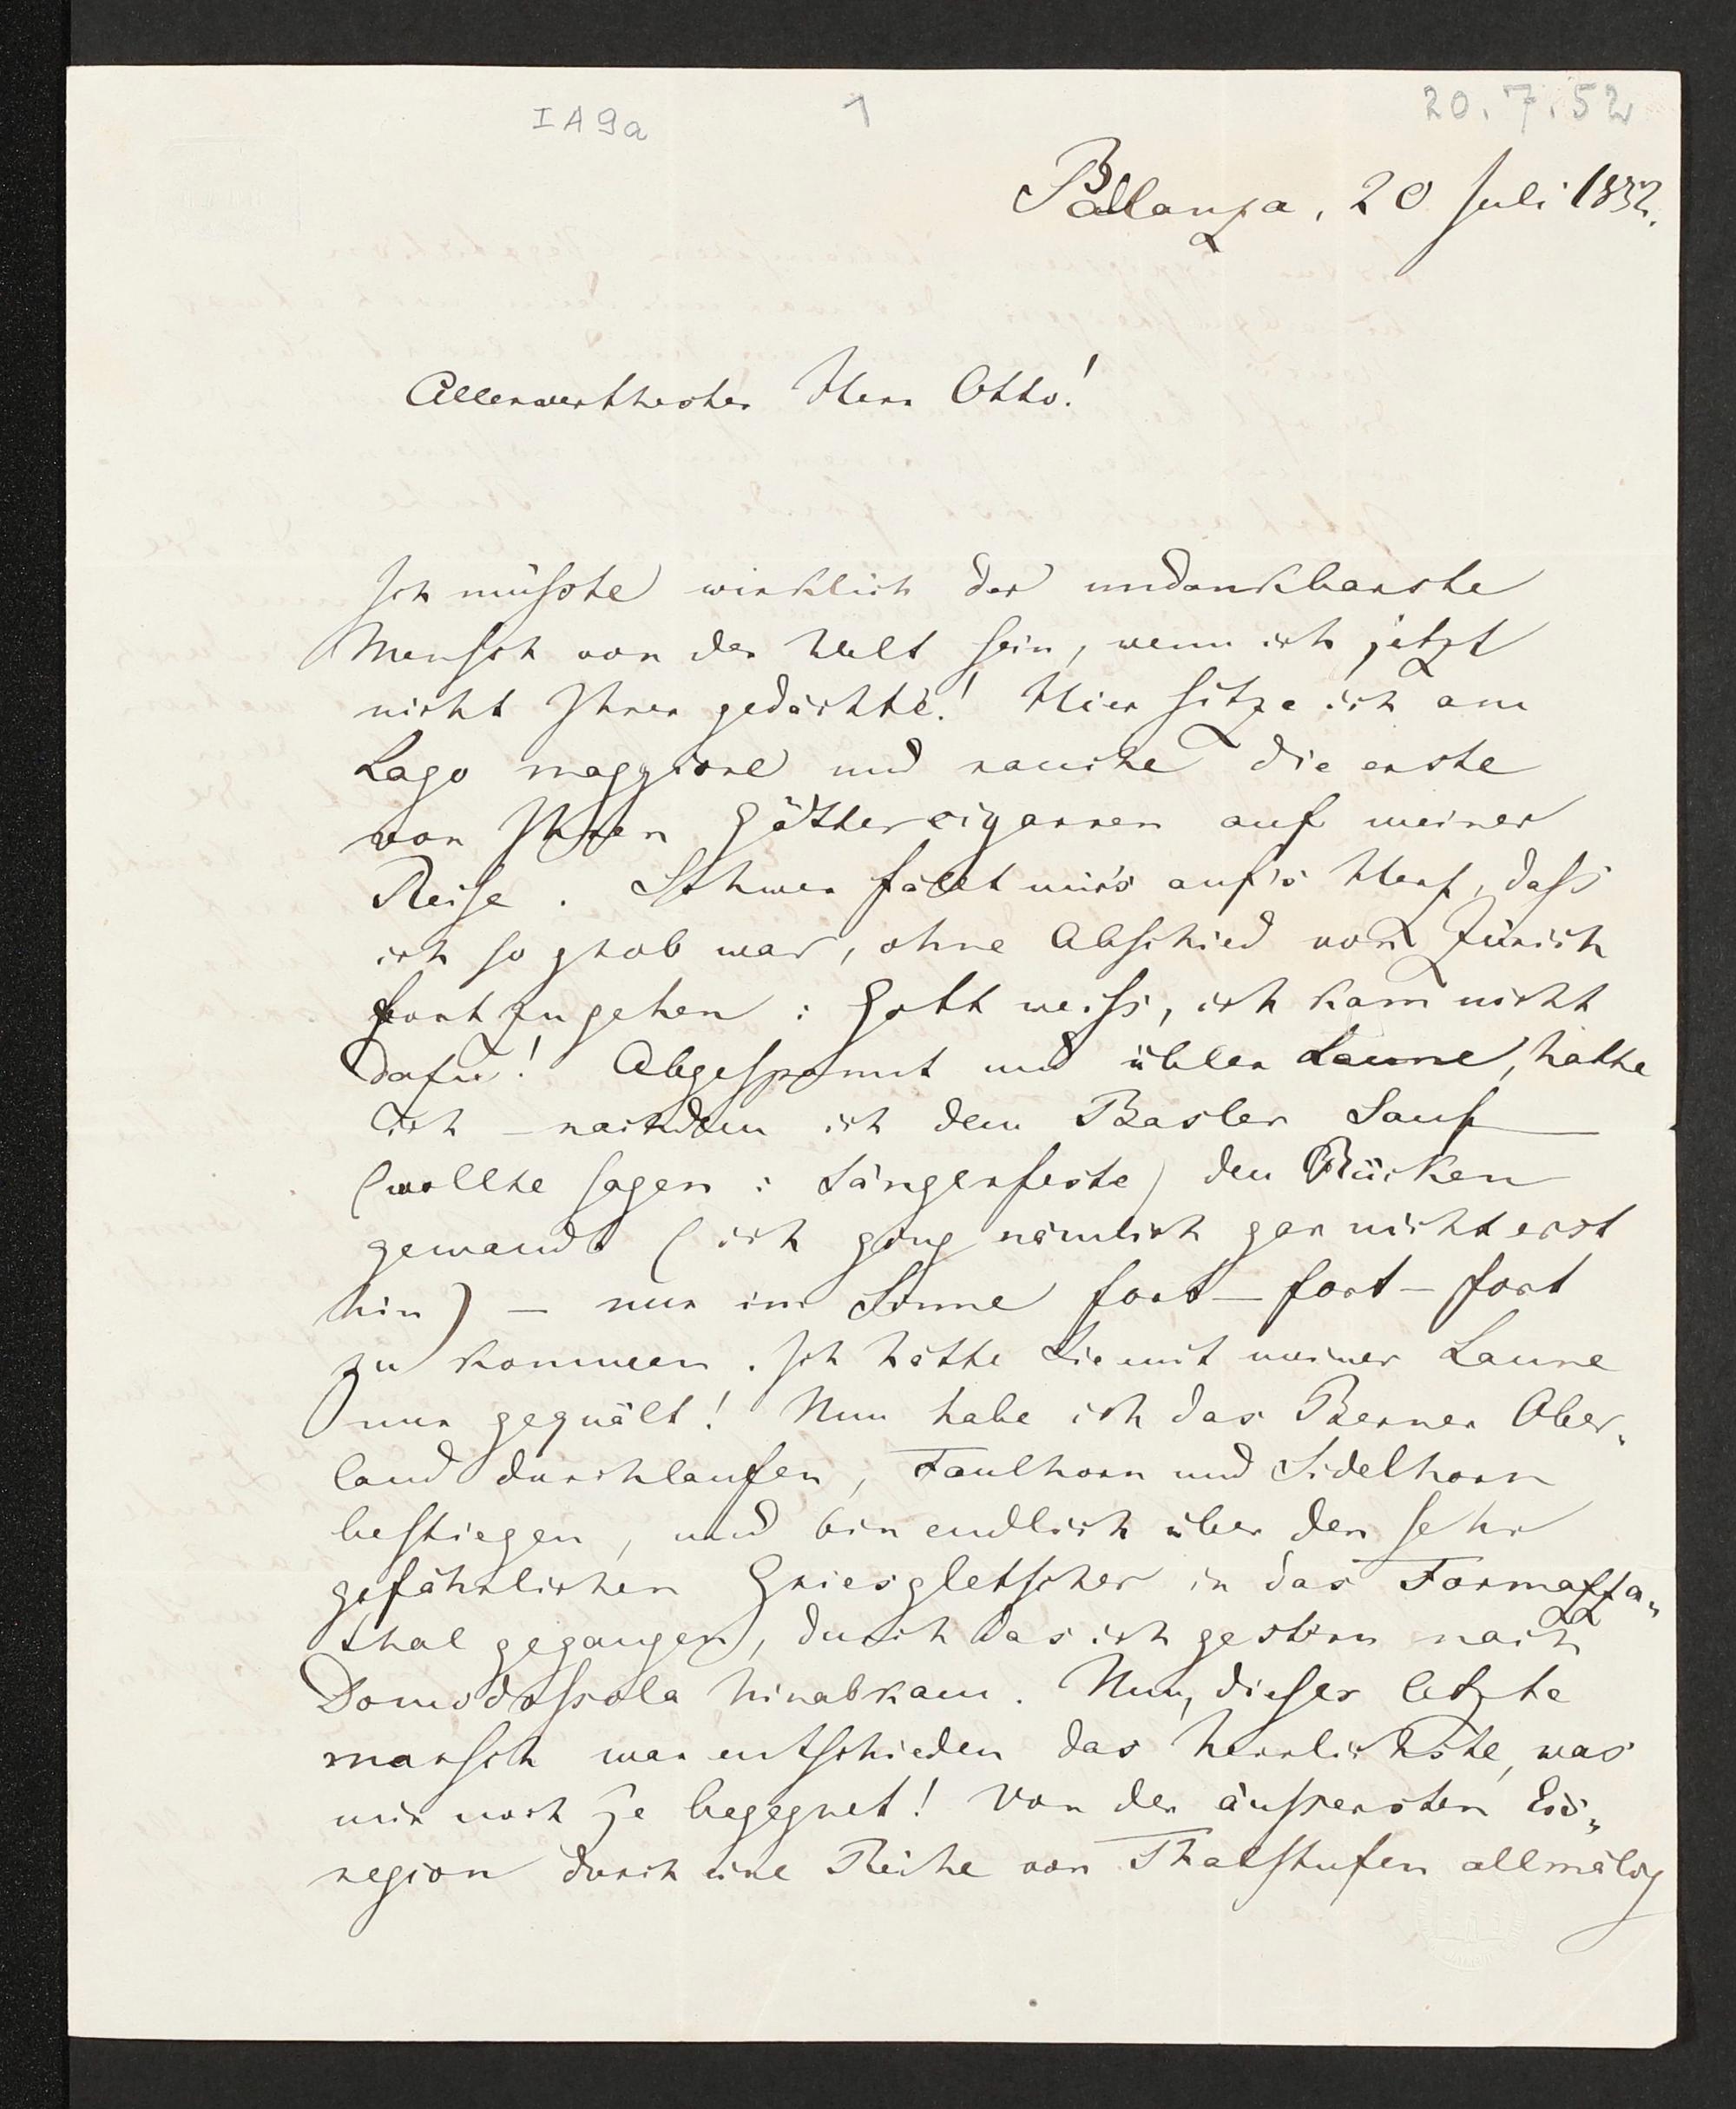 IA9a 1 20.7.52
Pallanza, 20 Juli 1852.
Allerwerthester Herr Otto!
Ich müsste wirklich der undankbarste
Mensch von der Welt sein, wenn ich jetzt
nicht Ihrer gedächte! Hier sitze ich am
Lago maggiore und rauche die erste
von Ihren Göttercigarren auf meiner
Reise. Schwer fällt mir's auf's Herz, dass
ich so grob war, ohne Abschied von Zürich
fortzugehen: Gott weiss, ich kam nicht
dafür! Abgespannt und übler Laune, hatte
ich – nachdem ich dem Basler Sauf
(wollte sagen: Sängerfeste) den Rücken
gewandt (ich ging nämlich gar nicht erst
hin) – nur im Sinne fort – fort – fort
zu kommen. Ich hätte Sie mit meiner Laune
nur gequält! Nun habe ich das Berner Ober„
land durchlaufen, Faulhorn und Sidelhorn
bestiegen, und bin endlich über den sehr
gefährlichen Griesgletscher in das Formazza„
thal gegangen, durch das ich gestern nach
Domodossola hinabkam. Nun, dieser letzte
marsch war entschieden das herrlichste, was
mir noch je begegnet! Von der äussersten Eis„
region durch eine Reihe von Thalstufen allmälig